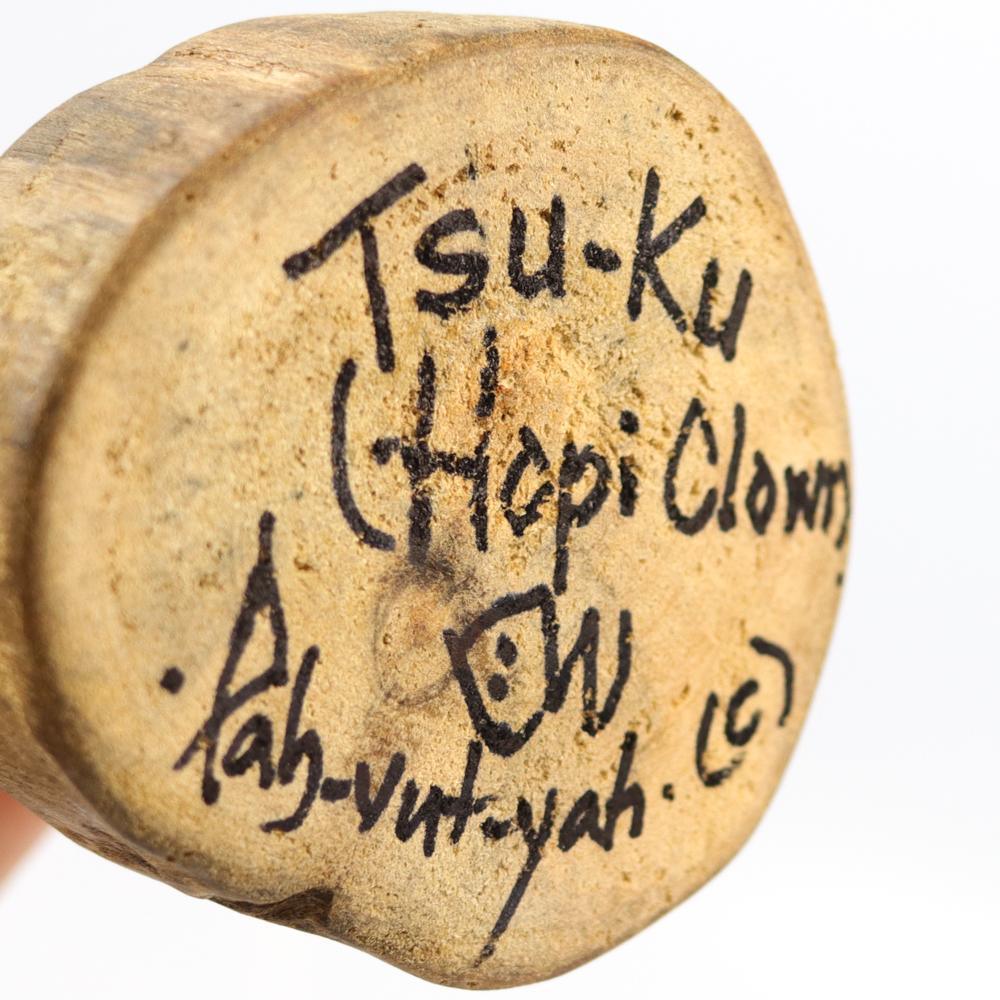 Tsu-Ku
(Hopi Clown)
W
·Pah-vut-yah· (c)